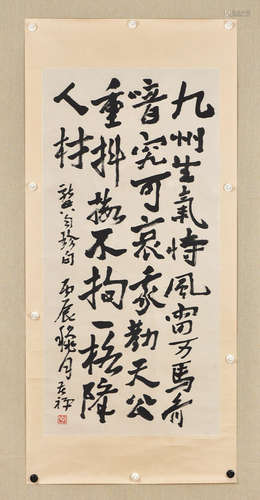 九州生氣恃風雷万馬齐
喑究可哀我勸天公
重抖擻不拘一格降
人材
龔自珍句 丙辰 月